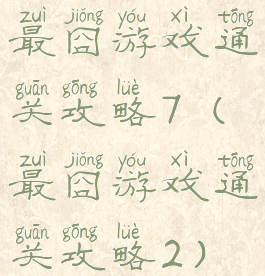 zuì jiǒng yóu xì tōng
最囧游戏通
guān gōng lüè
关攻略7（
zuì jiǒng yóu xì tōng
最囧游戏通
guān gōng lüè
关攻略2）